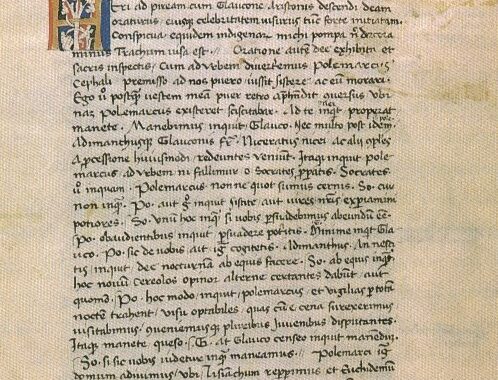 Eri ad piream cum Glaucone Aristonis descendi deam
oraturus: eiusque celebritatem uisurus tunc forte initiatam.
Conspicua equidem indigenarum michi pompa: decora
minus Trachum uisa est. Oratione autem dec exhibita et
sacris inspectis: Cum ad urbem diuertemus Polemarcus
Cephali premisso ad nos puero iussit sistere ac eum morari.
Ego ũ postquam uestem meam puer retro aprehendit auersus ubi
nam Polemarcus existeret sciscitabar. Ad te inquit properat
manete. Manebimus inquit Glauco. Nec multo post idem
Adimanthusque Glauconis fr. Niceratus nicei ac alii
a processione huiusmodi redeuntes ueniunt. Itaque inquit pole
marcus ad urbem ni fallimur o Socrates properatis. Socrates
ũ inquam. Polemarcus nonne quot sumus cernis. So. cur
non inquam. Po. aut igitur inquit sistite aut uires nostras experiamini
potiores. So. Unum hoc inquam si uobis persuadebimus abeundum esse.
Po. obaudientibus inquit persuadere potestis. Minime inquit Gla
uco. Po. sic de uobis aut igitur cogitetis. Adimanthus. An nesci
tis inquit dec nocturna ab equis facere. So. ab equis inquam
hoc nouum cereolos opinor alterne certantes dabunt aut
quomodo. Po. hoc modo inquit polemarcus et uigilias per totam
noctem trahent uisu optabiles quas cum e cena surexerimus
uisitabimus: queniemusque pluribus Iuuenibus disputantes.
Itaque manete queso. G. at Glauco censeo inquit manendum.
So. si sic uobis uidetur inquam maneamus. Polemarci igitur
domum adiuimus ubi Lisiacham repperimus et Euthidemum